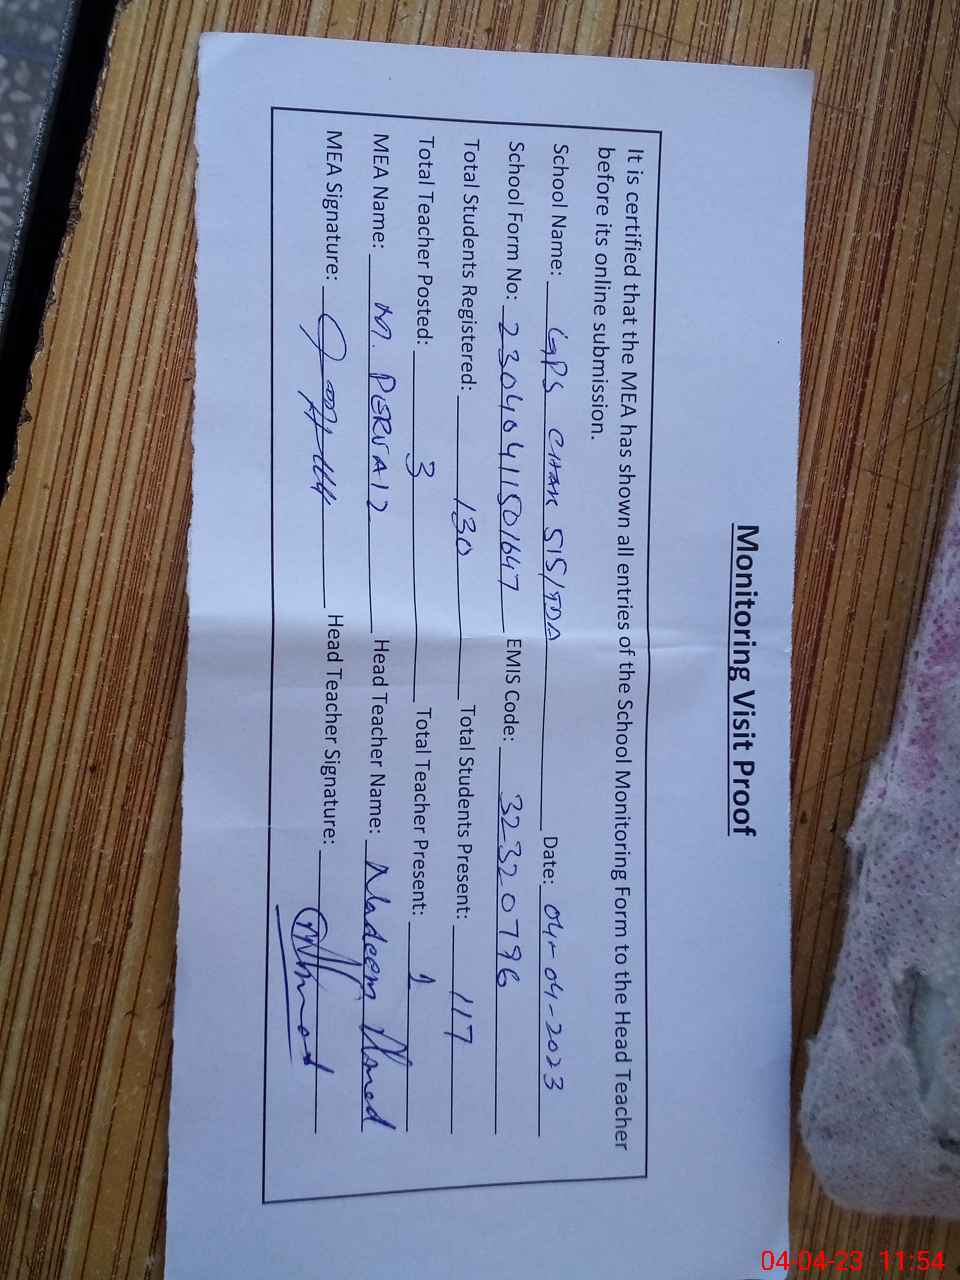 Monitoring Visit Proof
It is certified that the MEA has shown all entries of the School Monitoring Form to the Head Teacher
before its online submission.
School Name: GPS CHAK 515/TDA Date: 04-04-2023
School Form No: 23040411501647 EMIS Code: 32320796
Total Students Registered: 130 Total Students Present: 117
Total Teacher Posted: 3 Total Teacher Present: 1
MEA Name: M. PERVAIZ Head Teacher Name: Nadeem Ahmed
MEA Signature: Head Teacher Signature:
04-04-23 11:54